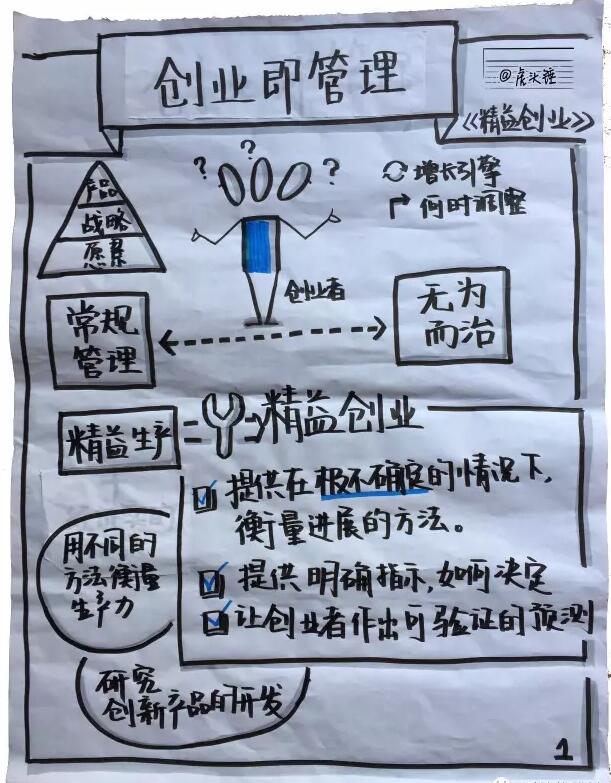 创业即管理
@虎头锤
《精益创业》
产品
战略
愿景
? ? ? ?
创业者
增长引擎
何时调整
常规
管理
无为
而治
精益生产
精益创业
提供在极不确定的情况下,
衡量进展的方法。
提供明确指示,如何决定
让创业者作出可验证的预测
用不同的
方法衡量
生产力
研究
创新产品的开发
1